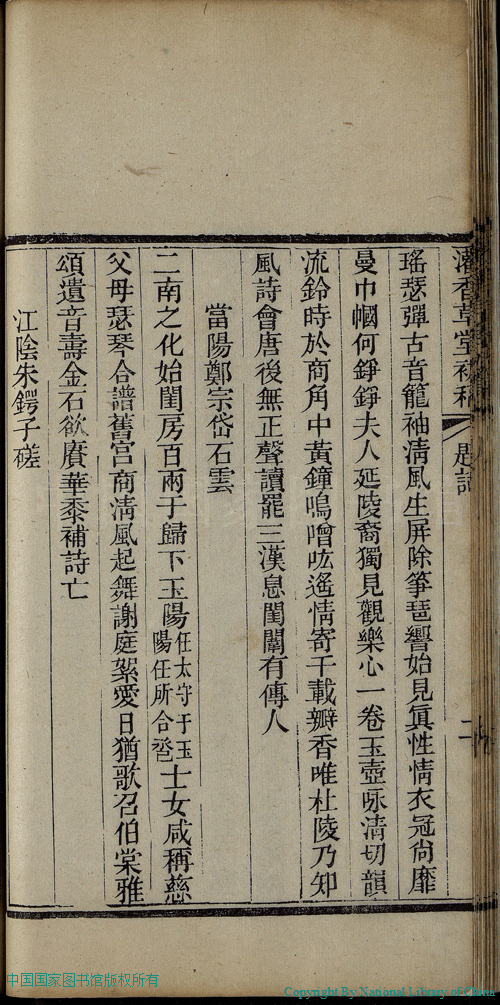 瑤瑟彈古音籠袖淸風生屏除箏琶響始見眞性情衣冠尙靡
曼巾幗何錚錚夫人延陵裔獨見觀樂心一卷玉壺咏清切韻
流鈴時於商角中黃鐘鳴噌吰遙情寄千載瓣香唯杜陵乃知
風詩會唐後無正聲讀罷三漢息閨闈有傳人
當陽鄭宗岱石雲
二南之化始閨房百兩于歸下玉陽任太守于玉陽任所合巹士女咸稱慈
父母瑟琴合譜舊宮商淸風起舞謝庭絮愛日猶歌召伯棠雅
頌遺音壽金石欲賡華黍補詩亡
江陰朱鍔子磋
香草堂
題詞
二
中国国家图书馆版权所有
Copyright By National Library of China